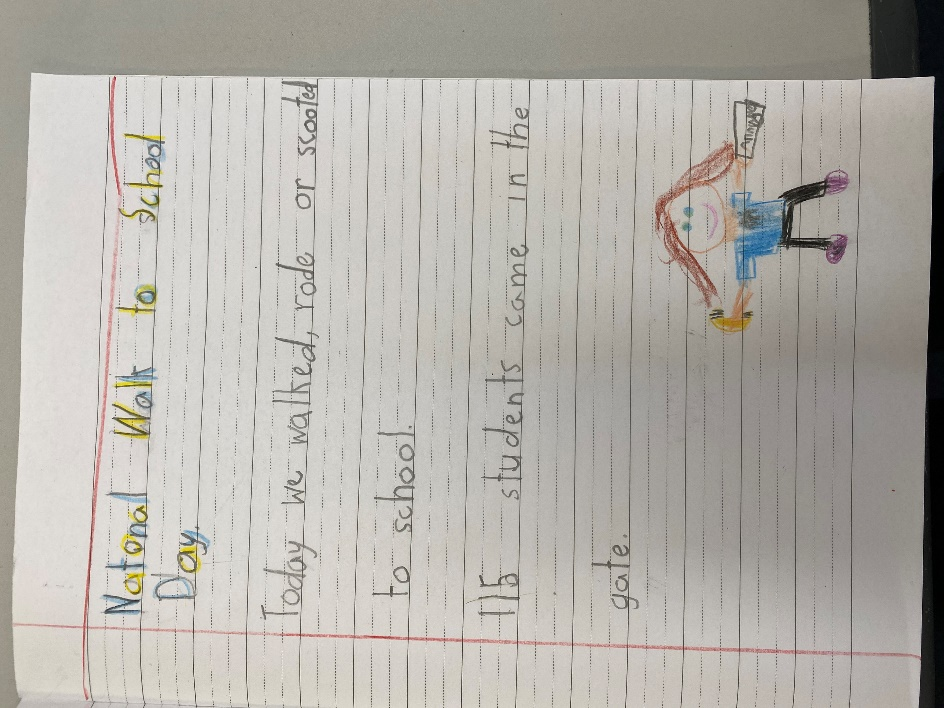 Natonal Walk to School
Day.
Today we walked, rode or scooted
to school.
115 students came in the
gate.